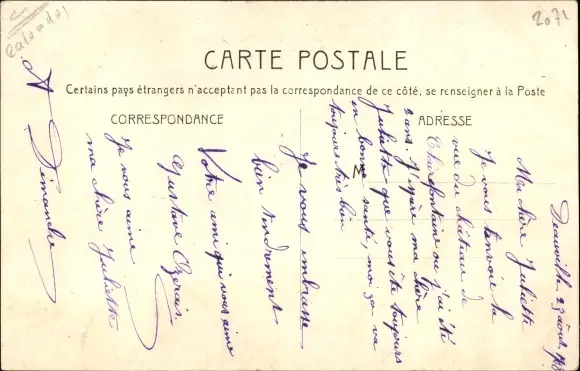 (Calvados)
2071
CARTE POSTALE
Certains pays étrangers n'acceptent pas la correspondance de ce côté, se renseigner à la Poste
CORRESPONDANCE
ADRESSE
M
Deauville 23 août
Ma chère Juliette
Je vous envoie la
vue du château de
où j'ai été
2 ans. J'espère ma chère
Juliette que vous êtes toujours
en bonne santé, moi ça va
toujours très bien
Je vous embrasse
bien tendrement
Votre ami qui vous aime
Gustave
Je vous aime
ma chère Juliette
A Dimanche